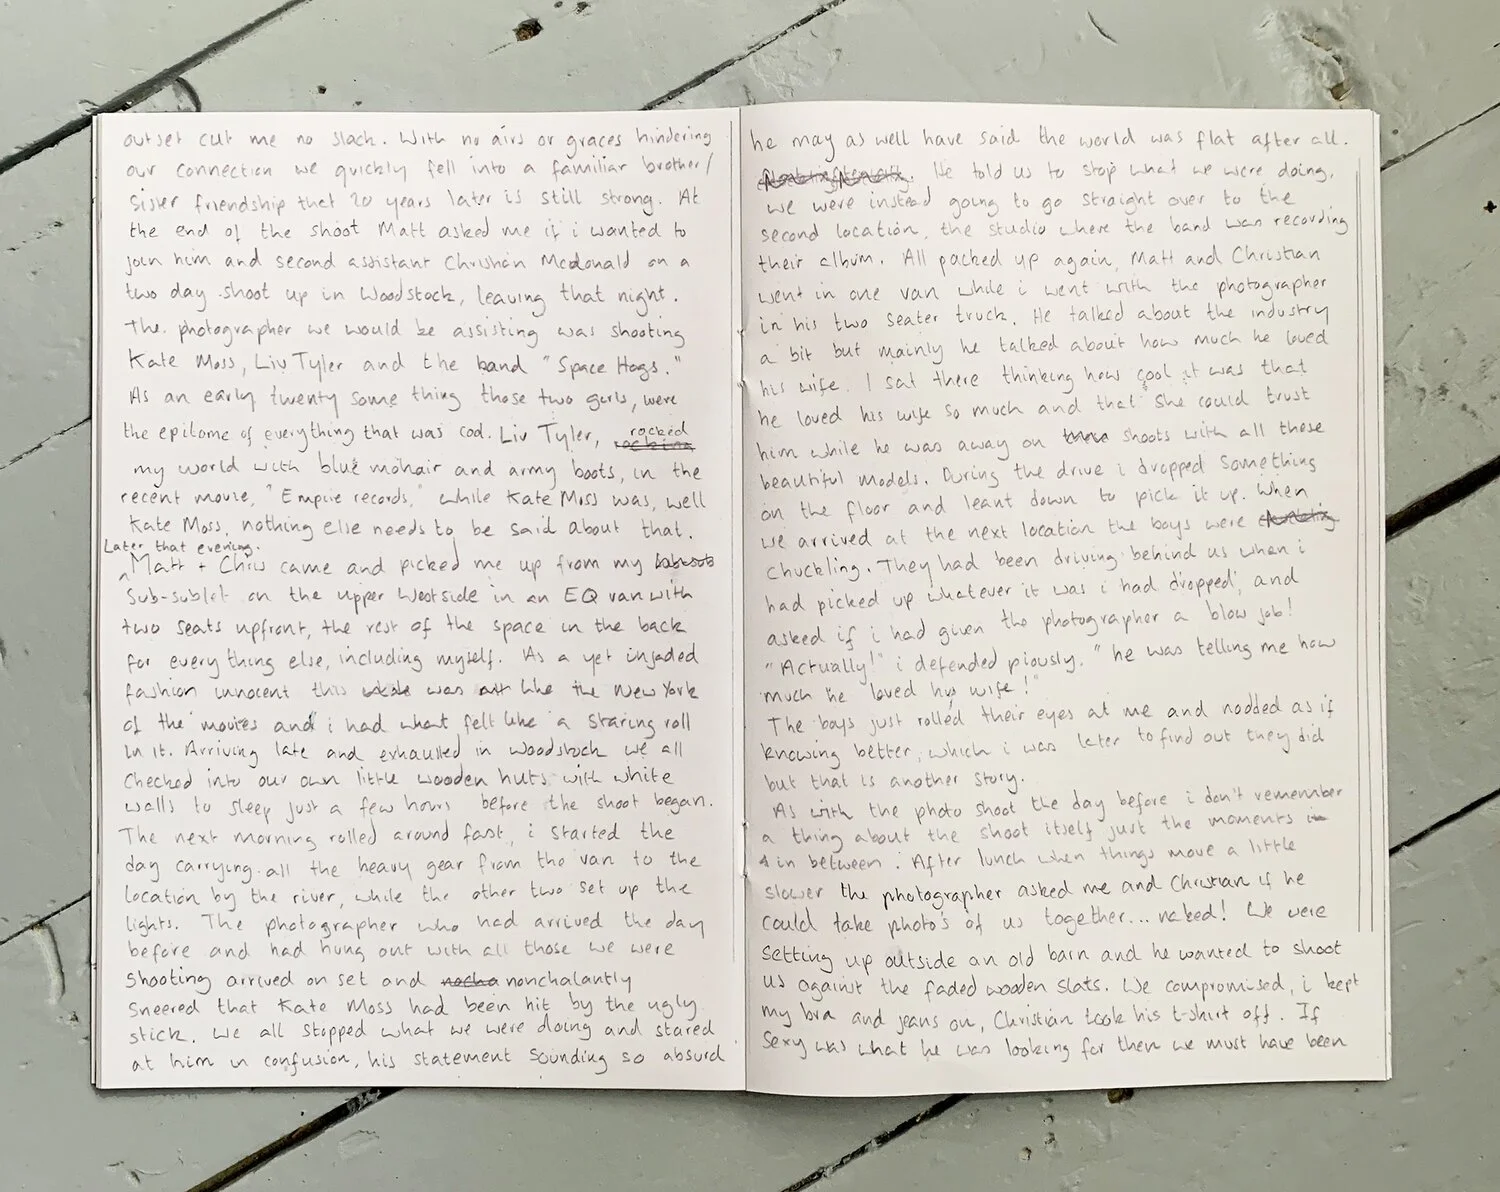 outset cut me no slack. With no airs or graces hindering
our connection we quickly fell into a familiar brother/
sister friendship that 20 years later is still strong. At
the end of the shoot Matt asked me if i wanted to
join him and second assistant Christian Mcdonald on a
two day shoot up in Woodstock, leaving that night.
The photographer we would be assisting was shooting
Kate Moss, Liv Tyler and the band "Space Hogs."
As an early twenty some thing those two girls, were
the epitome of everything that was cool. Liv Tyler, rocked
my world with blue mohair and army boots, in the
recent movie, "Empire records," while Kate Moss was, well
Kate Moss, nothing else needs to be said about that.
Later that evening.
Matt + Chris came and picked me up from my
Sub-sublet on the upper Westside in an EQ van with
two seats upfront, the rest of the space in the back
for every thing else, including myself. As a yet injaded
fashion innocent this was like the New York
of the movies and i had what felt like a staring roll
in it. Arriving late and exhausted in Woodstock we all
checked into our own little wooden huts with white
walls to sleep just a few hours before the shoot began.
The next morning rolled around fast, i started the
day carrying all the heavy gear from the van to the
location by the river, while the other two set up the
lights. The photographer who had arrived the day
before and had hung out with all those we were
shooting arrived on set and nonchalantly
sneered that Kate Moss had been hit by the ugly
stick. We all stopped what we were doing and stared
at him in confusion, his statement sounding so absurd
he may as well have said the world was flat after all.
He told us to stop what we were doing,
we were instead going to go straight over to the
second location, the studio where the band was recording
their album. All packed up again, Matt and Christian
went in one van while i went with the photographer
in his two seater truck. He talked about the industry
a bit but mainly he talked about how much he loved
his wife. I sat there thinking how cool it was that
he loved his wife so much and that she could trust
him while he was away on shoots with all these
beautiful models. During the drive i dropped something
on the floor and leant down to pick it up. When
we arrived at the next location the boys were
chuckling. They had been driving behind us when i
had picked up whatever it was i had dropped, and
asked if i had given the photographer a blow job!
"Actually!" i defended piously. "he was telling me how
much he loved his wife!"
The boys just rolled their eyes at me and nodded as if
knowing better, which i was later to find out they did
but that is another story.
As with the photo shoot the day before i don't remember
a thing about the shoot itself just the moments
in between. After lunch when things move a little
slower the photographer asked me and Christian if he
could take photo's of us together... naked! We were
setting up outside an old barn and he wanted to shoot
us against the faded wooden slats. We compromised, i kept
my bra and jeans on, Christian took his t-shirt off. If
sexy was what he was looking for then we must have been